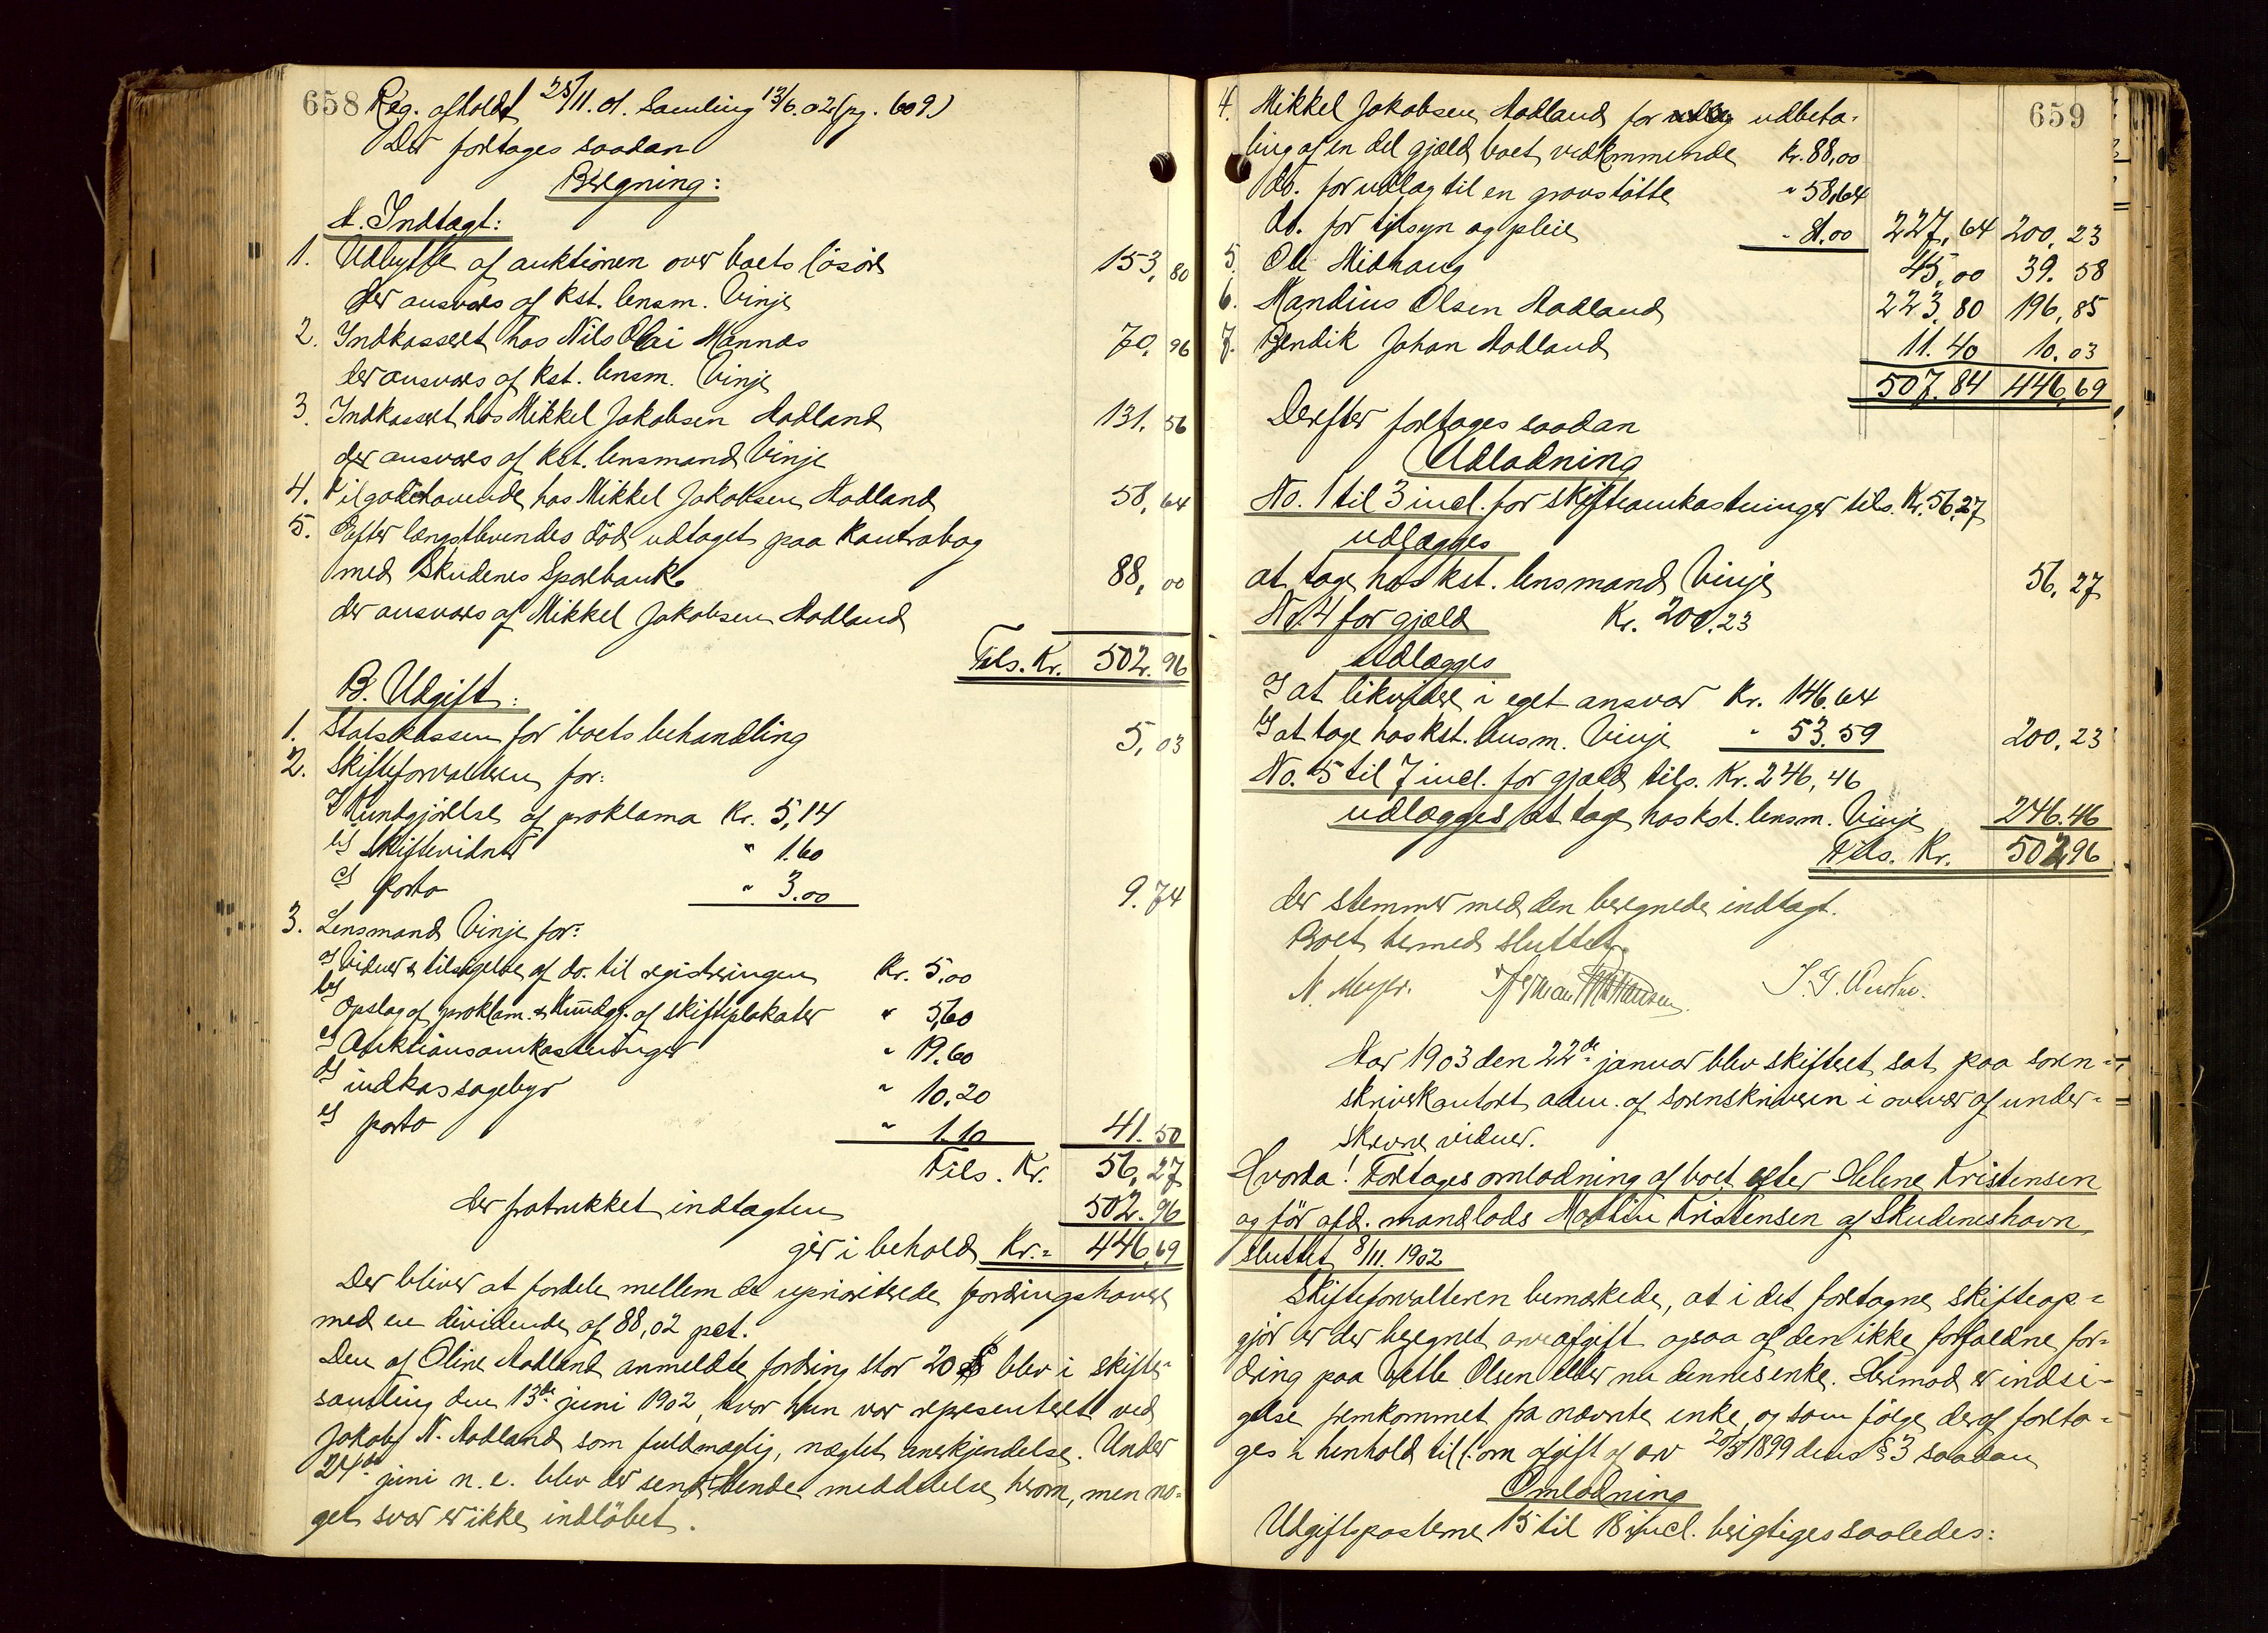 658 Reg. afholdt 25/11. 01. Samling 13/6. 02 (pg. 609)
Der foretages saadan
Beregning:
A. Indtægt:
1. Udbytte af auktionen over boets løsøre 153,80
der ansvares af kst. lensm. Vinje
2. Indkasseret hos Nils Olai Mannes 70,96
der ansvares af kst. lensm. Vinje
3. Indkasseret hos Mikkel Jakobsen Aadland 131.56
der ansvares af kst. lensmand Vinje
4. Tilgodehavende hos Mikkel Jakobsen Aadland 58,64
5. Efter længstlevendes død udtaget paa kontrabog
med Skudenes Sparebank 88,00
der ansvares af Mikkel Jakobsen Aadland
Tils. Kr. 502.96
B. Udgift:
1. Statskassen for boets behandling 5,03
2. Skifteforvalteren for:
a) Kundgjørelse af proklama Kr. 5,14
b) Skiftevidner " 1.60
c) porto " 3.00 9.74
3. Lensmand Vinje for:
a) Vidner & tilsigelse af do. til registreringen Kr. 5.00
b) Opslag af proklam. & Kundgj. af skifteplakater " 5,60
c) Auktionsomkostninger " 19.60
d) indkassagebyr " 10.20
e) porto " 1.10 41.50
Tils. Kr. 56,27
der fratrukket indtægten 502.96
gjør i behold Kr. = 446,69
Der bliver at fordele mellem de uprioriterede fordringshavere
med en dividende af 88,02 pct.
Den af Oline Aadland anmeldte fordring stor 20 blev i skifte-
samling den 13de juni 1902, hvor hun var representeret ved
Jakob N. Aadland som fuldmægtig, nægtet anerkjendelse. Under
24de juni n. e. blev der sendt hende meddelelse herom, men no-
get svar er ikke indløbet.
659
4. Mikkel Jakobsen Aadland for udbeta-
ling af en del gjæld boet vedkommende Kr. 88,00
do. for udlæg til en gravstøtte " 58,64
do. for tilsyn og pleie " 81.00 227,64 200,23
5. Ole Midhaug 45,00 39.58
6. Mandius Olsen Aadland 223.80 196,85
7. Bendik Johan Aadland 11.40 10.03
507.84 446,69
Derefter foretages saadan
Udlodning
No. 1 til 3 incl. for skifteomkostninger tils. Kr. 56,27
udlægges
at tage hos kst. lensmand Vinje 56,27
No. 4 for gjæld Kr. 200.23
udlægges
a) at likvidere i eget ansvar Kr. 146.64
b) at tage hos kst. lensm. Vinje " 53.59 200,23
No. 5 til 7 incl. for gjæld tils. Kr. 246,46
udlægges at tage hos kst. lensm. Vinje 246.46
Tils. Kr. 502,96
der stemmer med den beregnede indtægt.
Boet hermed sluttet.
N. Meyer.
Aar 1903 den 22de januar blev skifteret sat paa soren-
skriverkontoret adm. af sorenskriveren i overvær af under-
skrevne vidner.
Hvorda! Foretages omlodning af boet efter Helene Kristensen
og før afd. mand lods Martin Kristensen af Skudeneshavn,
sluttet 8/11. 1902
Skifteforvalteren bemærkede, at i det foretagne skifteop-
gjør er der beregnet arveafgift ogsaa af den ikke forfaldne for-
dring paa Vetle Olsen eller nu dennes enke. Herimod er indsi-
gelse fremkommet fra nævnte enke, og som følge deraf foreta-
ges i henhold til l. om afgift af arv 1899 dens § 3 saadan
Omlodning
Udgiftsposterne 15 til 18 incl. berigtiges saaledes: